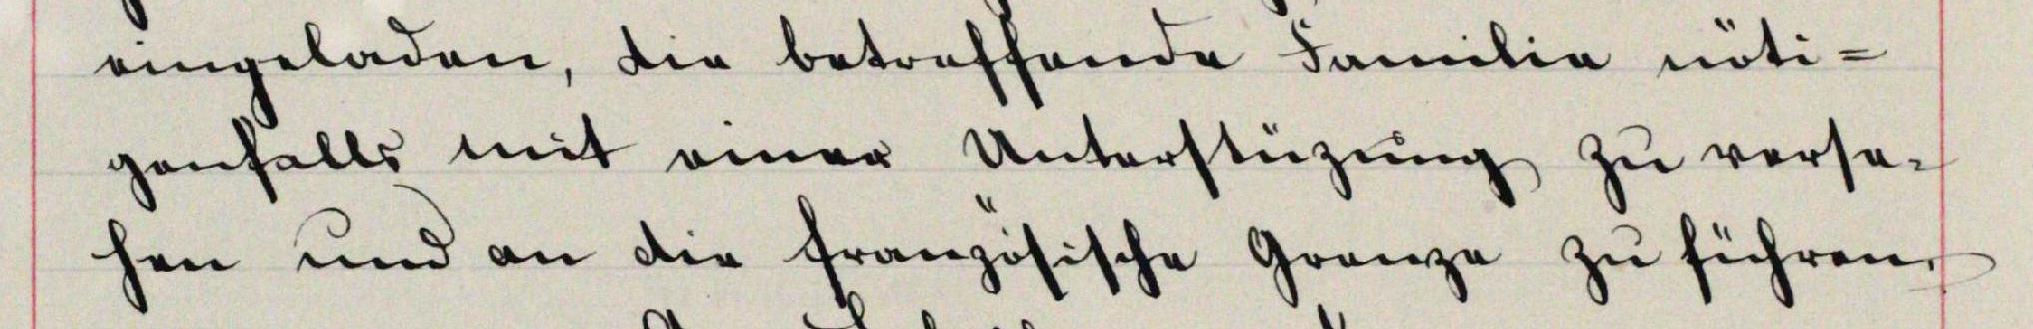 eingeladen, die betreffende Familie nöti=
genfalls mit einer Unterstüzung zu verse-
hen und an die französische Grenze zu führen.